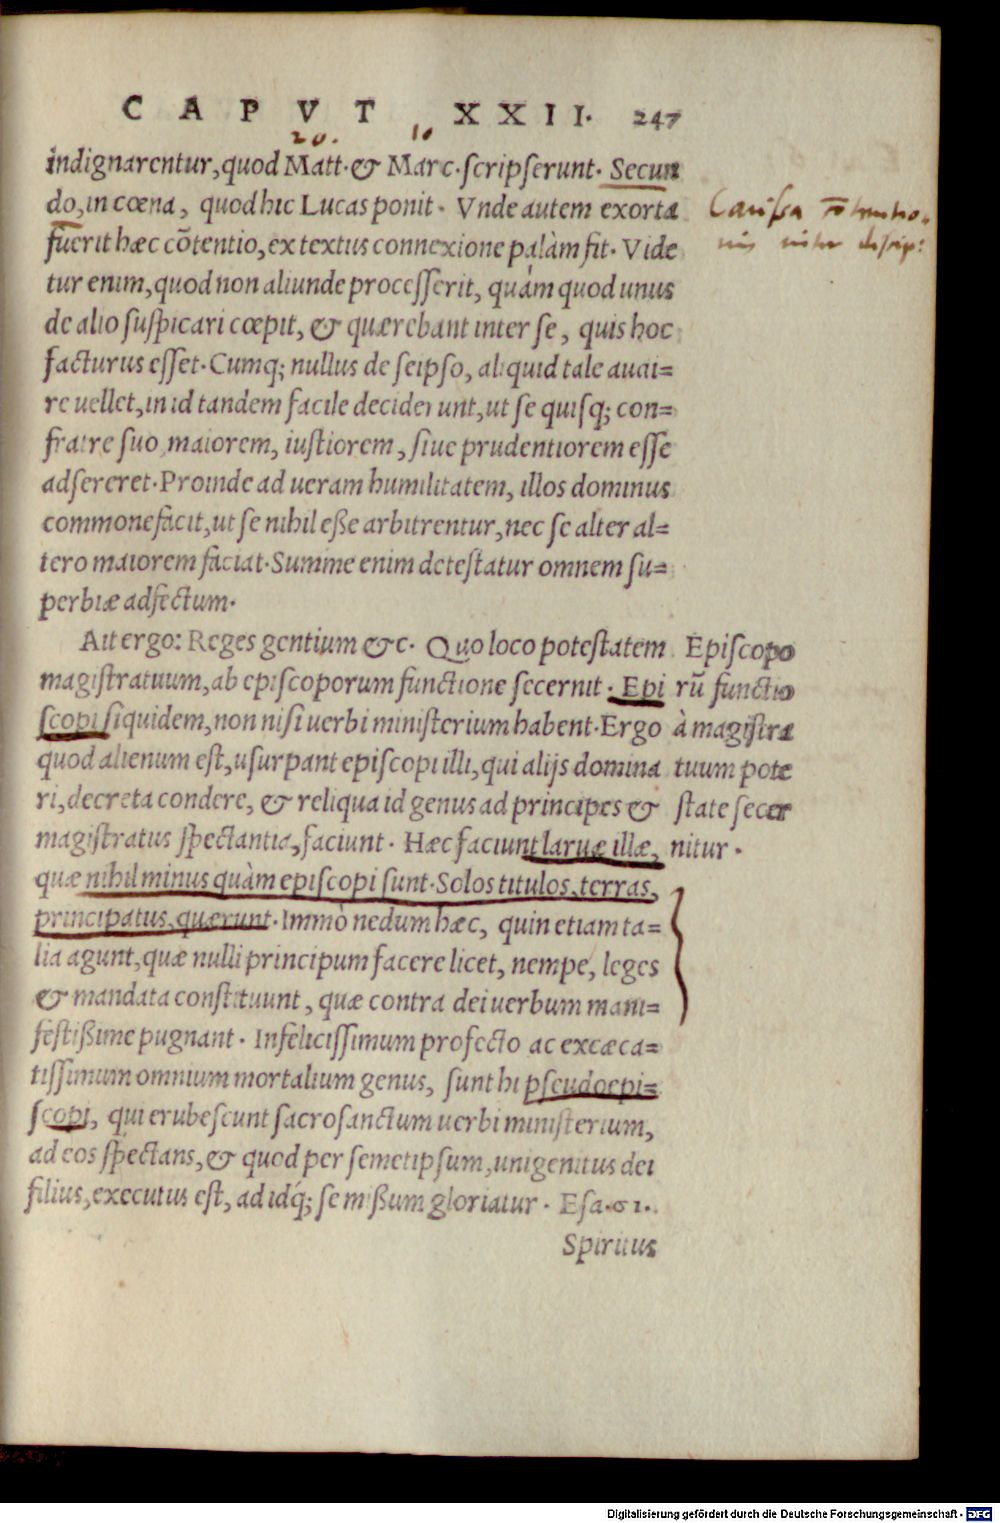 CAPVT XXII. 247
20. 10
indignarentur, quod Matt. & Marc. scripserunt. Secun
do, in cœna, quod hic Lucas ponit. Vnde autem exorta
fuerit hæc cōtentio, ex textus connexione palàm fit. Vide
tur enim, quod non aliunde processerit, quàm quod unus
de alio suspicari cœpit, & quærebant inter se, quis hoc
facturus esset. Cumq; nullus de seipso, aliquid tale audi=
re uellet, in id tandem facile deciderunt, ut se quisq; con=
fratre suo maiorem, iustiorem, siue prudentiorem esse
adsereret. Proinde ad ueram humilitatem, illos dominus
commonefacit, ut se nihil eße arbitrentur, nec se alter al=
tero maiorem faciat. Summe enim detestatur omnem su=
perbiæ adfectum.
Ait ergo: Reges gentium &c. Quo loco potestatem
magistratuum, ab episcoporum functione secernit. Epi
scopi siquidem, non nisi uerbi ministerium habent. Ergo
quod alienum est, usurpant episcopi illi, qui alijs domina
ri, decreta condere, & reliqua id genus ad principes &
magistratus spectantia, faciunt. Hæc faciunt laruæ illæ,
quæ nihil minus quàm episcopi sunt. Solos titulos, terras,
principatus, quærunt. Immò nedum hæc, quin etiam ta=
lia agunt, quæ nulli principum facere licet, nempe, leges
& mandata constituunt, quæ contra dei uerbum mani=
festißime pugnant. Infelicissimum profecto ac excæca=
tissimum omnium mortalium genus, sunt hi pseudoepi=
scopi, qui erubescunt sacrosanctum uerbi ministerium,
ad eos spectans, & quod per semetipsum, unigenitus dei
filius, executus est, ad idq́; se mißum gloriatur. Esa. 61.
Spiritus
Causa
Episcopo
rū functio
à magistra
tuum pote
state secer
nitur.
Digitalisierung gefördert durch die Deutsche Forschungsgemeinschaft - DFG